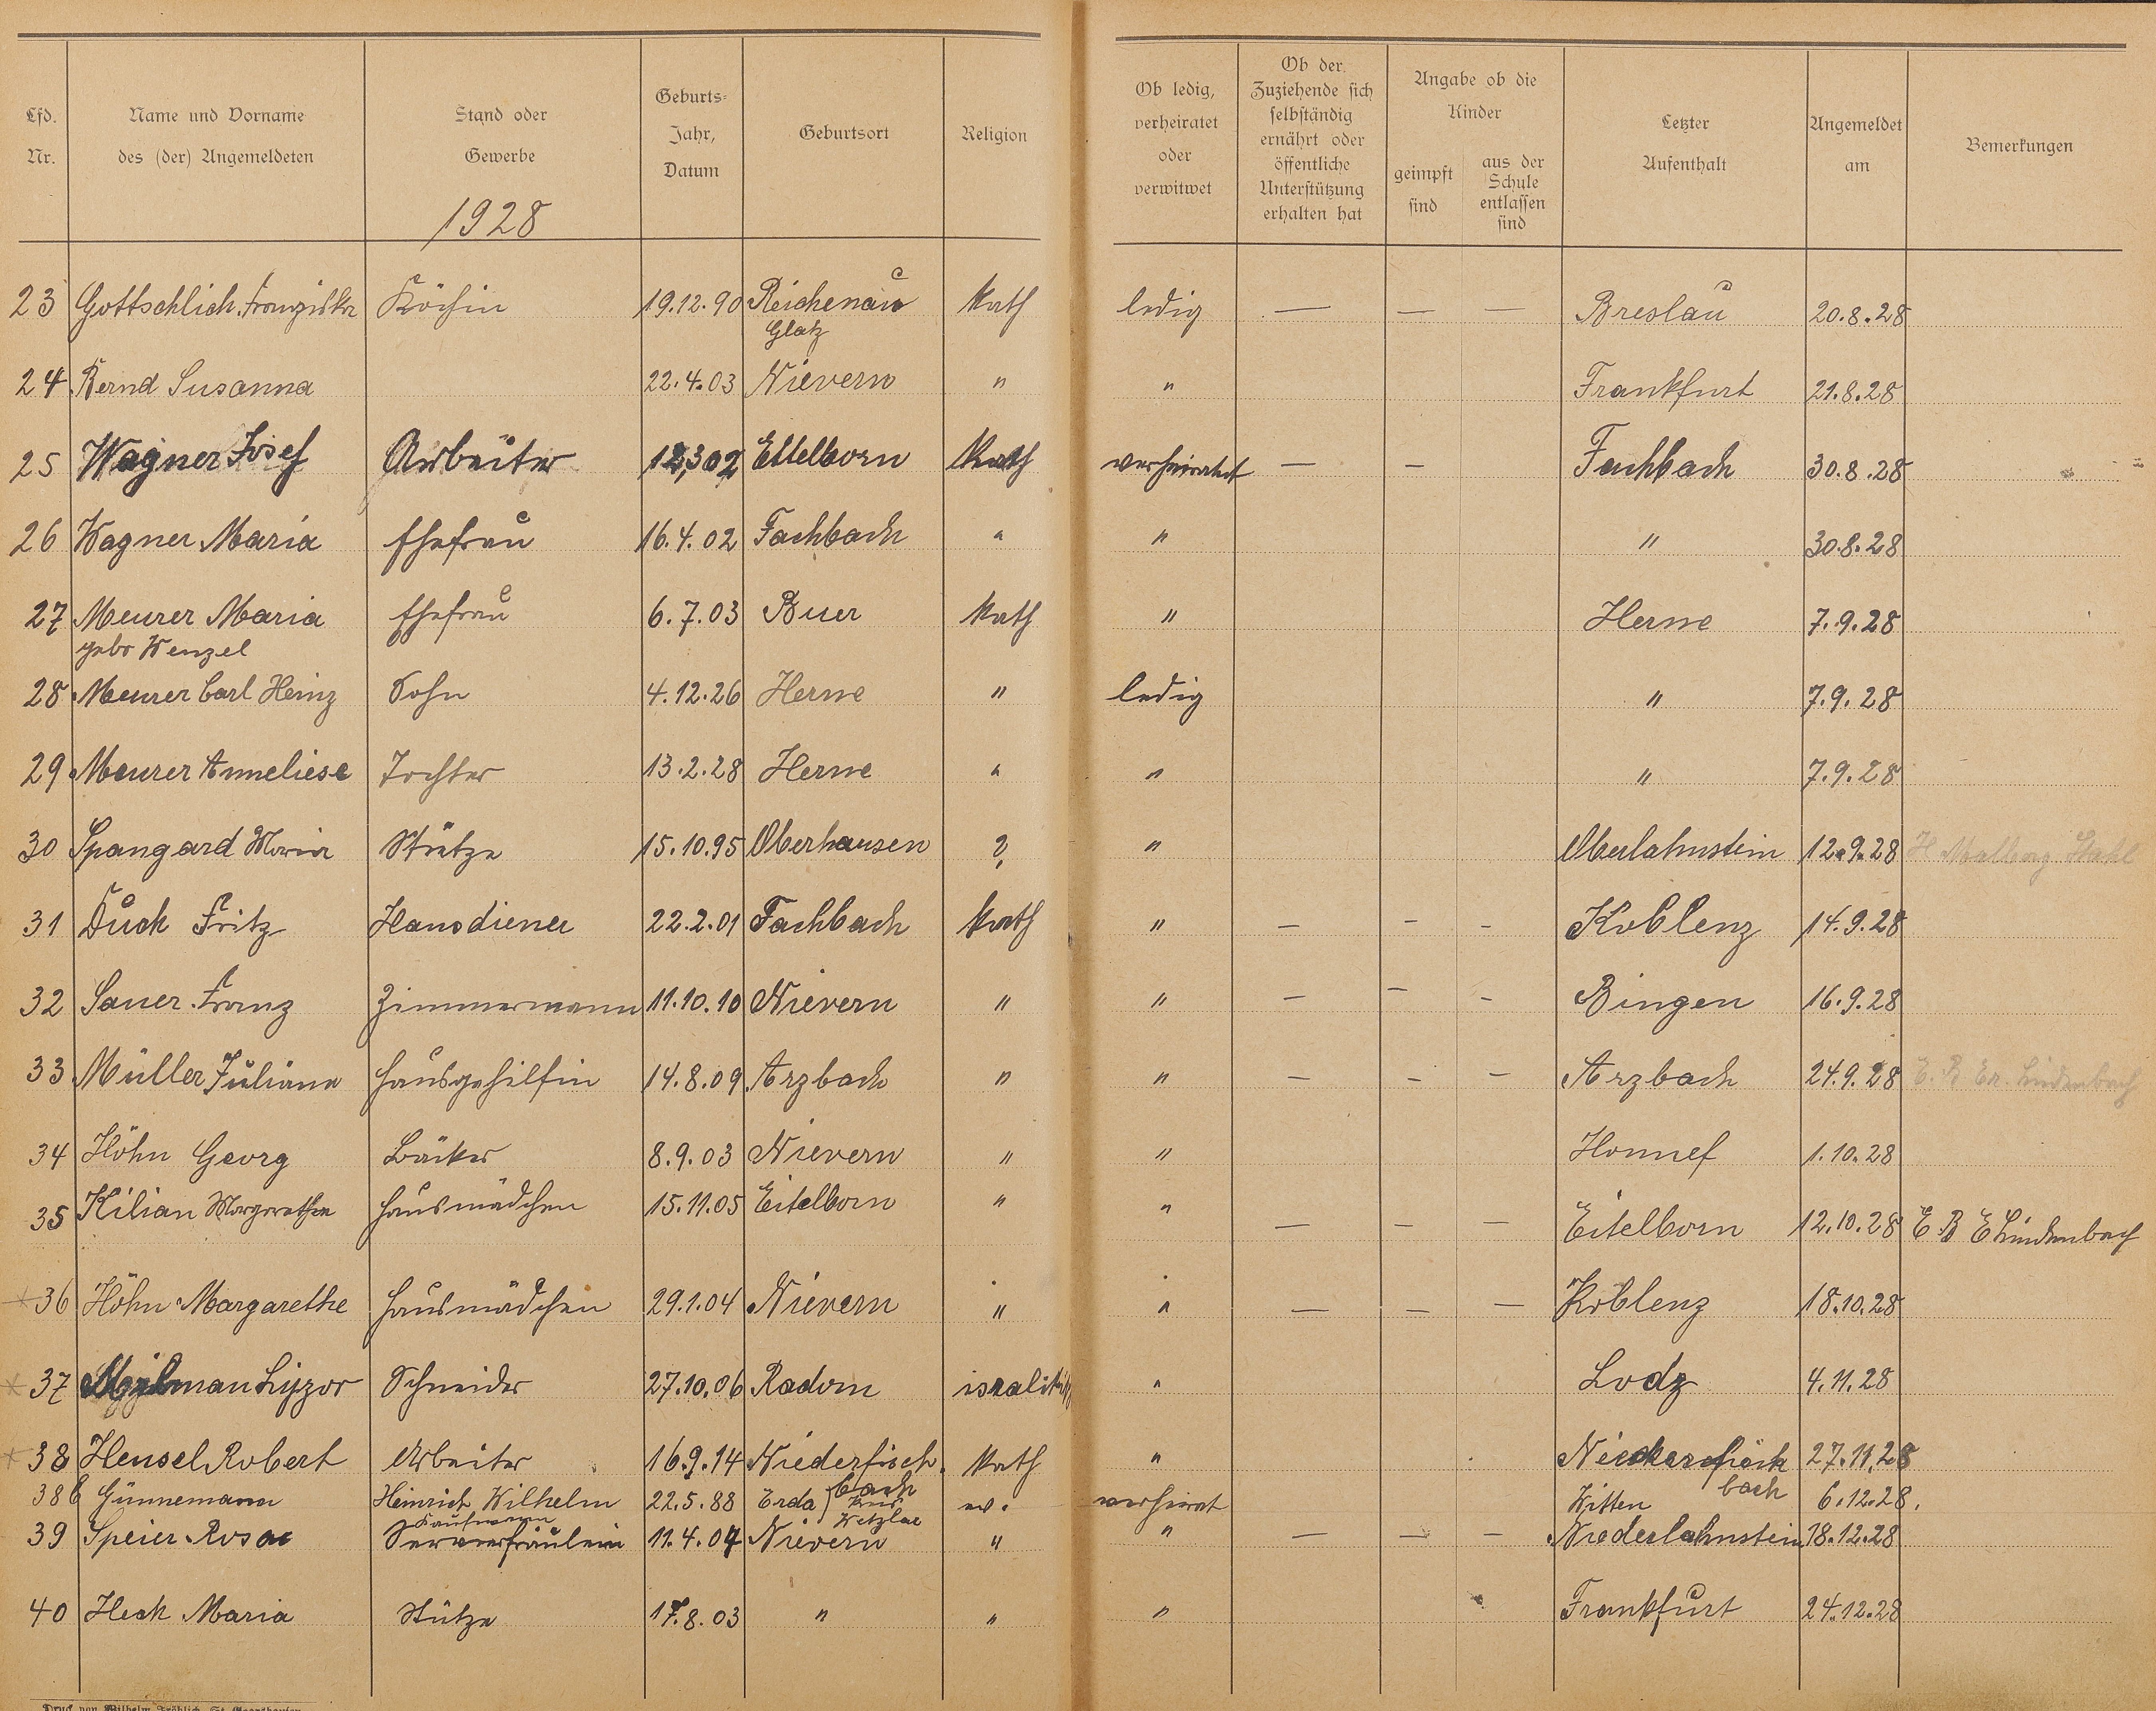 Lfd. Nr. Name und Vorname des (der) Angemeldeten Stand oder Gewerbe Geburts- Jahr, Datum Geburtsort Religion Ob ledig, verheiratet oder verwitwet Ob der Zuziehende sich selbständig ernährt oder öffentliche Unterstützung erhalten hat Angabe ob die Kinder geimpft sind aus der Schule entlassen sind Letzter Aufenthalt Angemeldet am Bemerkungen
1928
23 Gottschlich. Franziska Köchin 19.12.90 Reichenau Kath ledig — — — Breslau 20.8.28
Glatz
24 Bernd Susanna 22.4.03 Nievern " " Frankfurt 21.8.28
25 Wagner Josef Arbeiter Kath verheiratet — — Fachbach 30.8.28
26 Wagner Maria Ehefrau 16.4.02 Fachbach " " " 30.8.28
27 Meurer Maria Ehefrau 6.7.03 Buer Kath " Herne 7.9.28
gebr Wenzel
28 Meurer Carl Heinz Sohn 4.12.26 Herne " ledig " 7.9.28
29 Meurer Anneliese Tochter 13.2.28 Herne " " " 7.9.28
30 Spangard Maria Stütze 15.10.95 Oberhausen ? " Oberlahnstein 12.9.28 H Malberg Stahl
31 Duck Fritz Hausdiener 22.2.01 Fachbach Kath " — - - Koblenz 14.9.28
32 Sauer. Franz Zimmermann 11.10.10 Nievern " " — — - Bingen 16.9.28
33 Müller Juliana Hausgehilfin 14.8.09 Arzbach " " — - — Arzbach 24.9.28 E. B Er. Lindenbach
34 Höhn Georg Bäcker 8.9.03 Nievern " " Honnef 1.10.28
35 Kilian Margarethe Hausmädchen 15.11.05 Eitelborn " " — — — Eitelborn 12.10.28 E B E Lindenbach
36 Höhn Margarethe Hausmädchen 29.1.04 Nievern " " — — — Koblenz 18.10.28
37 Schneider 27.10.06 Radom isralitisch " Lodz 4.11.28
38 Hensel Robert Arbeiter 16.9.14 Niederfisch. Kath " Niederfisch 27.11.28
bach bach
38b Günnemann Heinrich Wilhelm 22.5.88 Erda Kreis ev. verheirat Witten 6.12.28.
Kaufmann Wetzlar
39 Speier Rosa Servierfräulein 11.4.07 Nievern " " — — — Niederlahnstein 18.12.28
40 Heck Maria Stütze 17.8.03 " " " Frankfurt 24.12.28
Druck von Wilhelm Fröhlich, St. Goarshausen